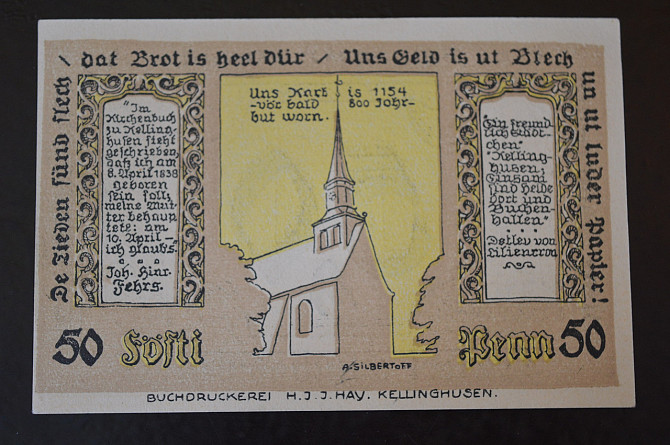 De Tieden sünd slech / dat Brot is heel dür / Uns Geld is ut Blech un ut luder Papier!
"Im
Kirchenbuch
zu Kelling-
husen steht
geschrieben,
daß ich am
8. April 1838
geboren
sein soll,
meine Mut-
ter behaup-
tete: am
10. April –
ich glaub's.
Joh. Hinr.
Fehrs.
Uns Kark is 1154
-vör bald 800 Johr-
but worn.
"Ein freund-
lich Städt-
chen
Kelling-
husen;
Einsam
sind Heide
dort und
Buchen-
hallen"
Detlev von
Liliencron
50 Föfti Penn 50
A. SILBERTOFF
BUCHDRUCKEREI H. J. J. HAY. KELLINGHUSEN.